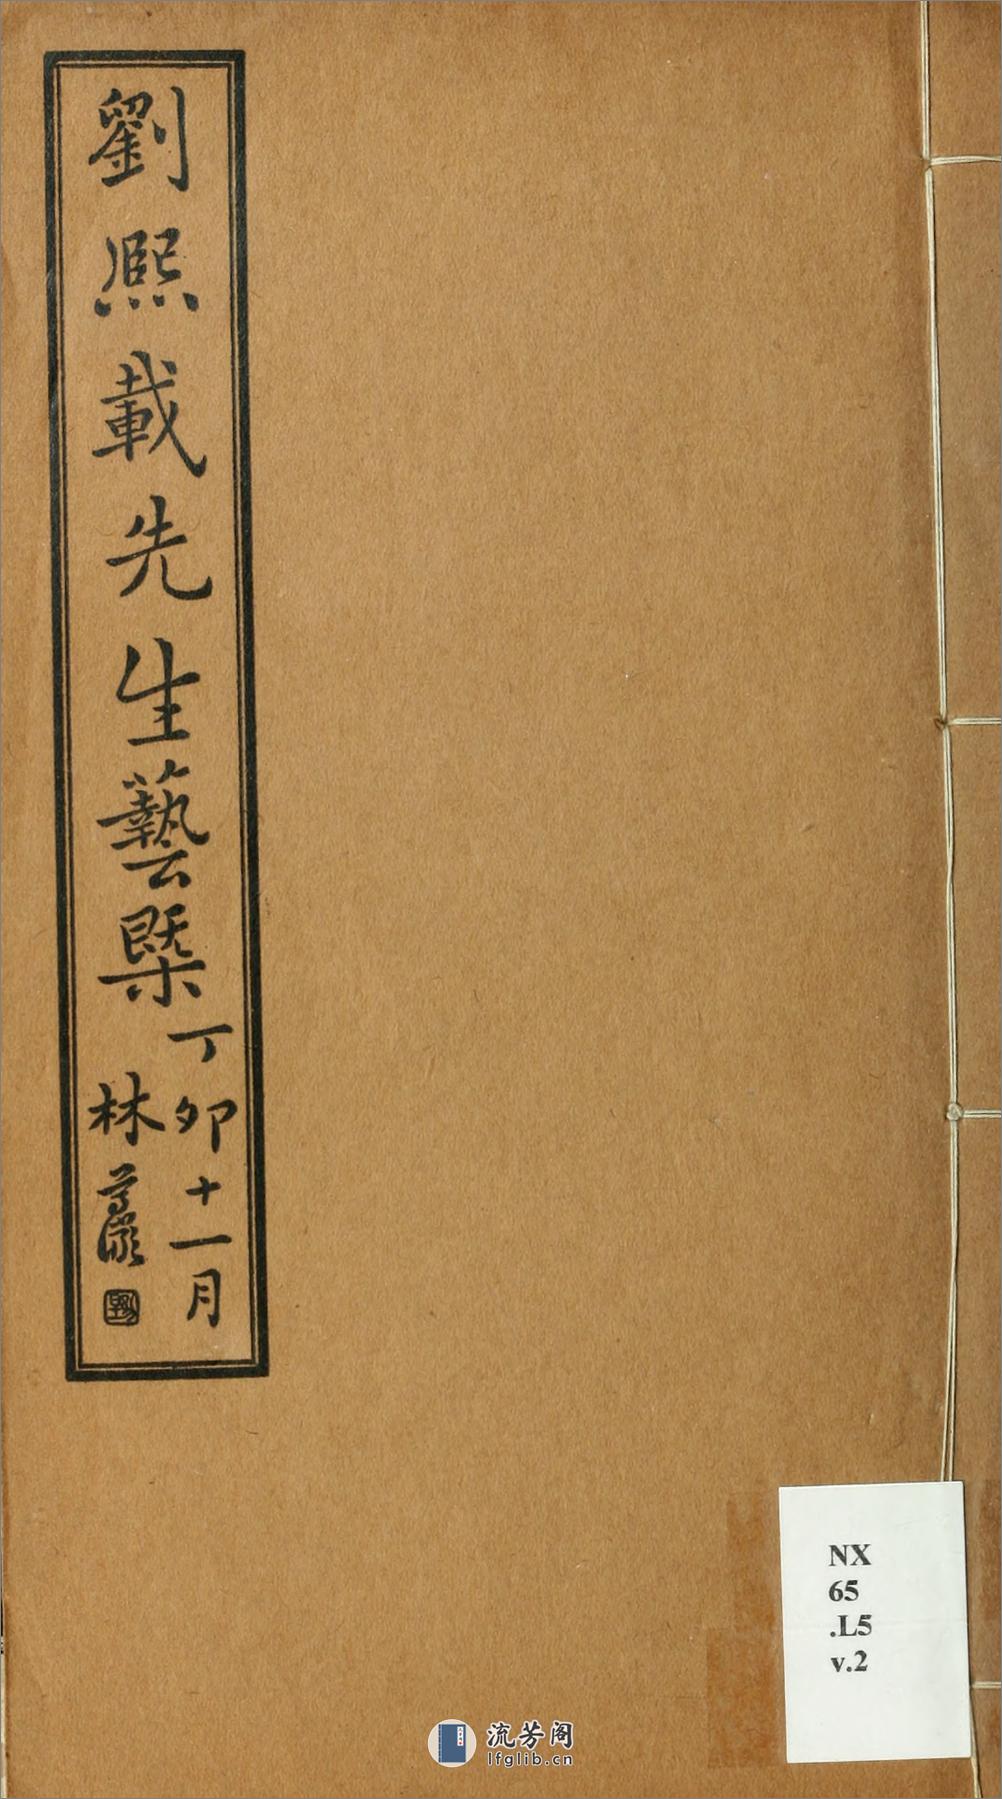 劉熙載先生藝槩
丁卯十一月
林
NX
65
.L5
v.2
流芳阁
lfglib.cn